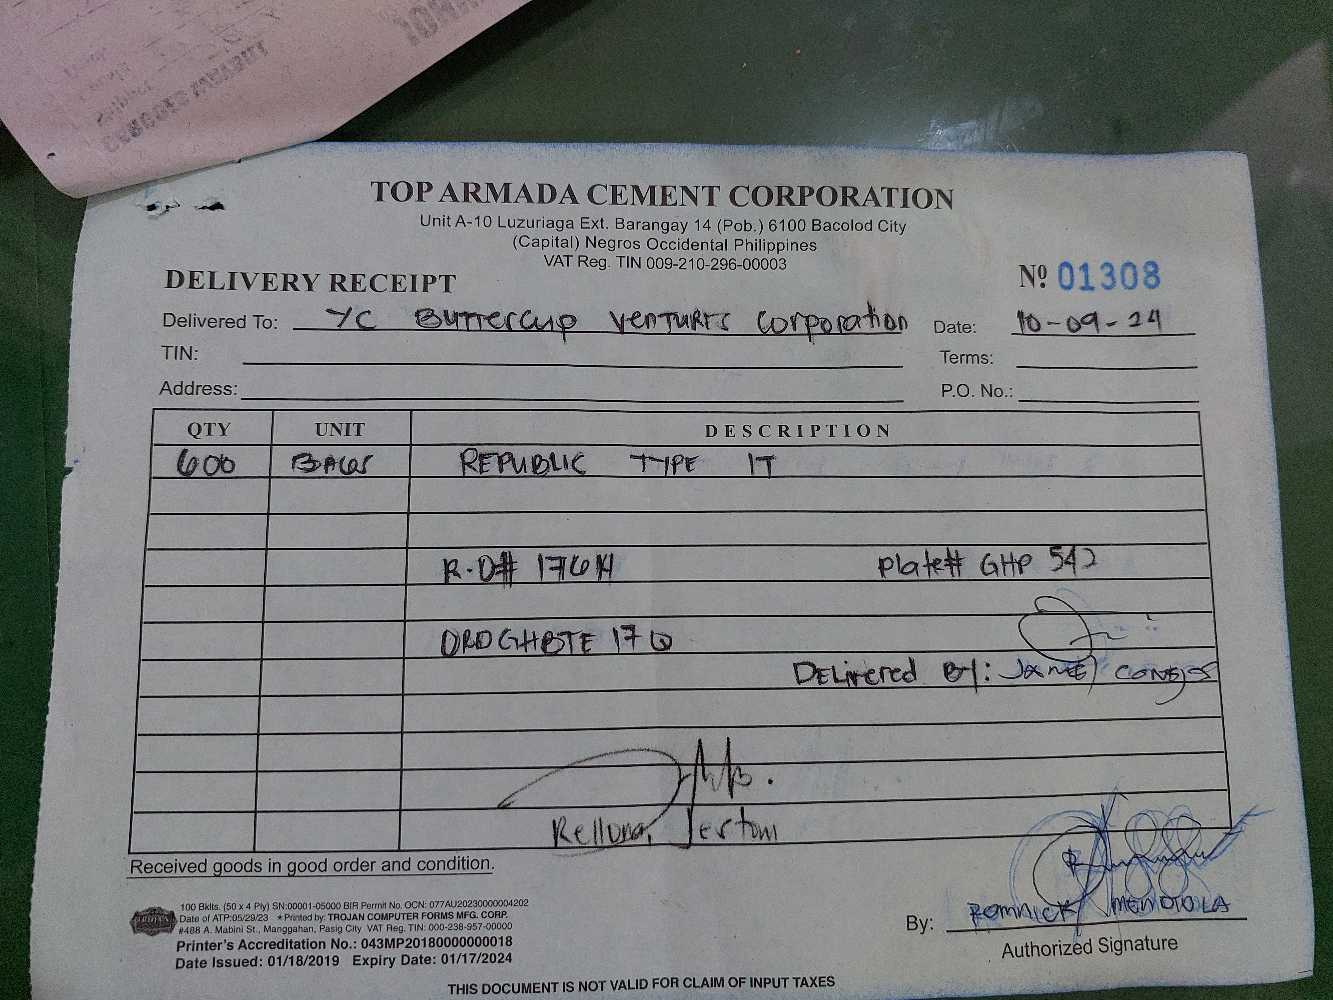 TOP ARMADA CEMENT CORPORATION
Unit A-10 Luzuriaga Ext. Barangay 14 (Pob.) 6100 Bacolod City
(Capital) Negros Occidental Philippines
VAT Reg. TIN 009-210-296-00003
DELIVERY RECEIPT
Nº 01308
Delivered To: YC Buttercup Ventures Corporation Date: 10-09-24
TIN: Terms:
Address: P.O. No.:
QTY UNIT DESCRIPTION
600 BAGS REPUBLIC TYPE 1T
R.O# Plate# GHP 542
Delivered By:
Relluna, Jestoni
Received goods in good order and condition.
100 Bklts. (50 x 4 Ply) SN:00001-05000 BIR Permit No. OCN: 077AU20230000004202
Date of ATP:05/29/23 * Printed by: TROJAN COMPUTER FORMS MFG. CORP.
#488 A. Mabini St., Manggahan, Pasig City VAT Reg. TIN: 000-238-957-00000
Printer's Accreditation No.: 043MP20180000000018
Date Issued: 01/18/2019 Expiry Date: 01/17/2024
By: ROMNICK MENDIOLA
Authorized Signature
THIS DOCUMENT IS NOT VALID FOR CLAIM OF INPUT TAXES